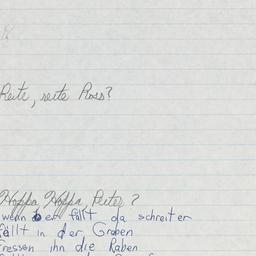 Reite, reite Ross?
Hoppa, Hoppa, Reiter?
wenn er fällt da schreiter
fällt in der Graben
fressen ihn die Raben